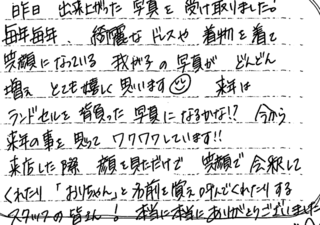 昨日 出来上がった 写真を 受け取りました。
毎年毎年、綺麗な ドレスや 着物を着て
笑顔になっている 我が子の 写真が どんどん
増え とても嬉しく思います 来年は
ランドセルを背負った 写真になるかな!? 今から
来年の事を思って ワクワクしています!!
来店した際 顔を見ただけで 笑顔で 会釈して
くれたり 「おりちゃん」と名前を覚え呼んでくれたりする
スタッフの皆さん! 本当に本当にありがとうございました